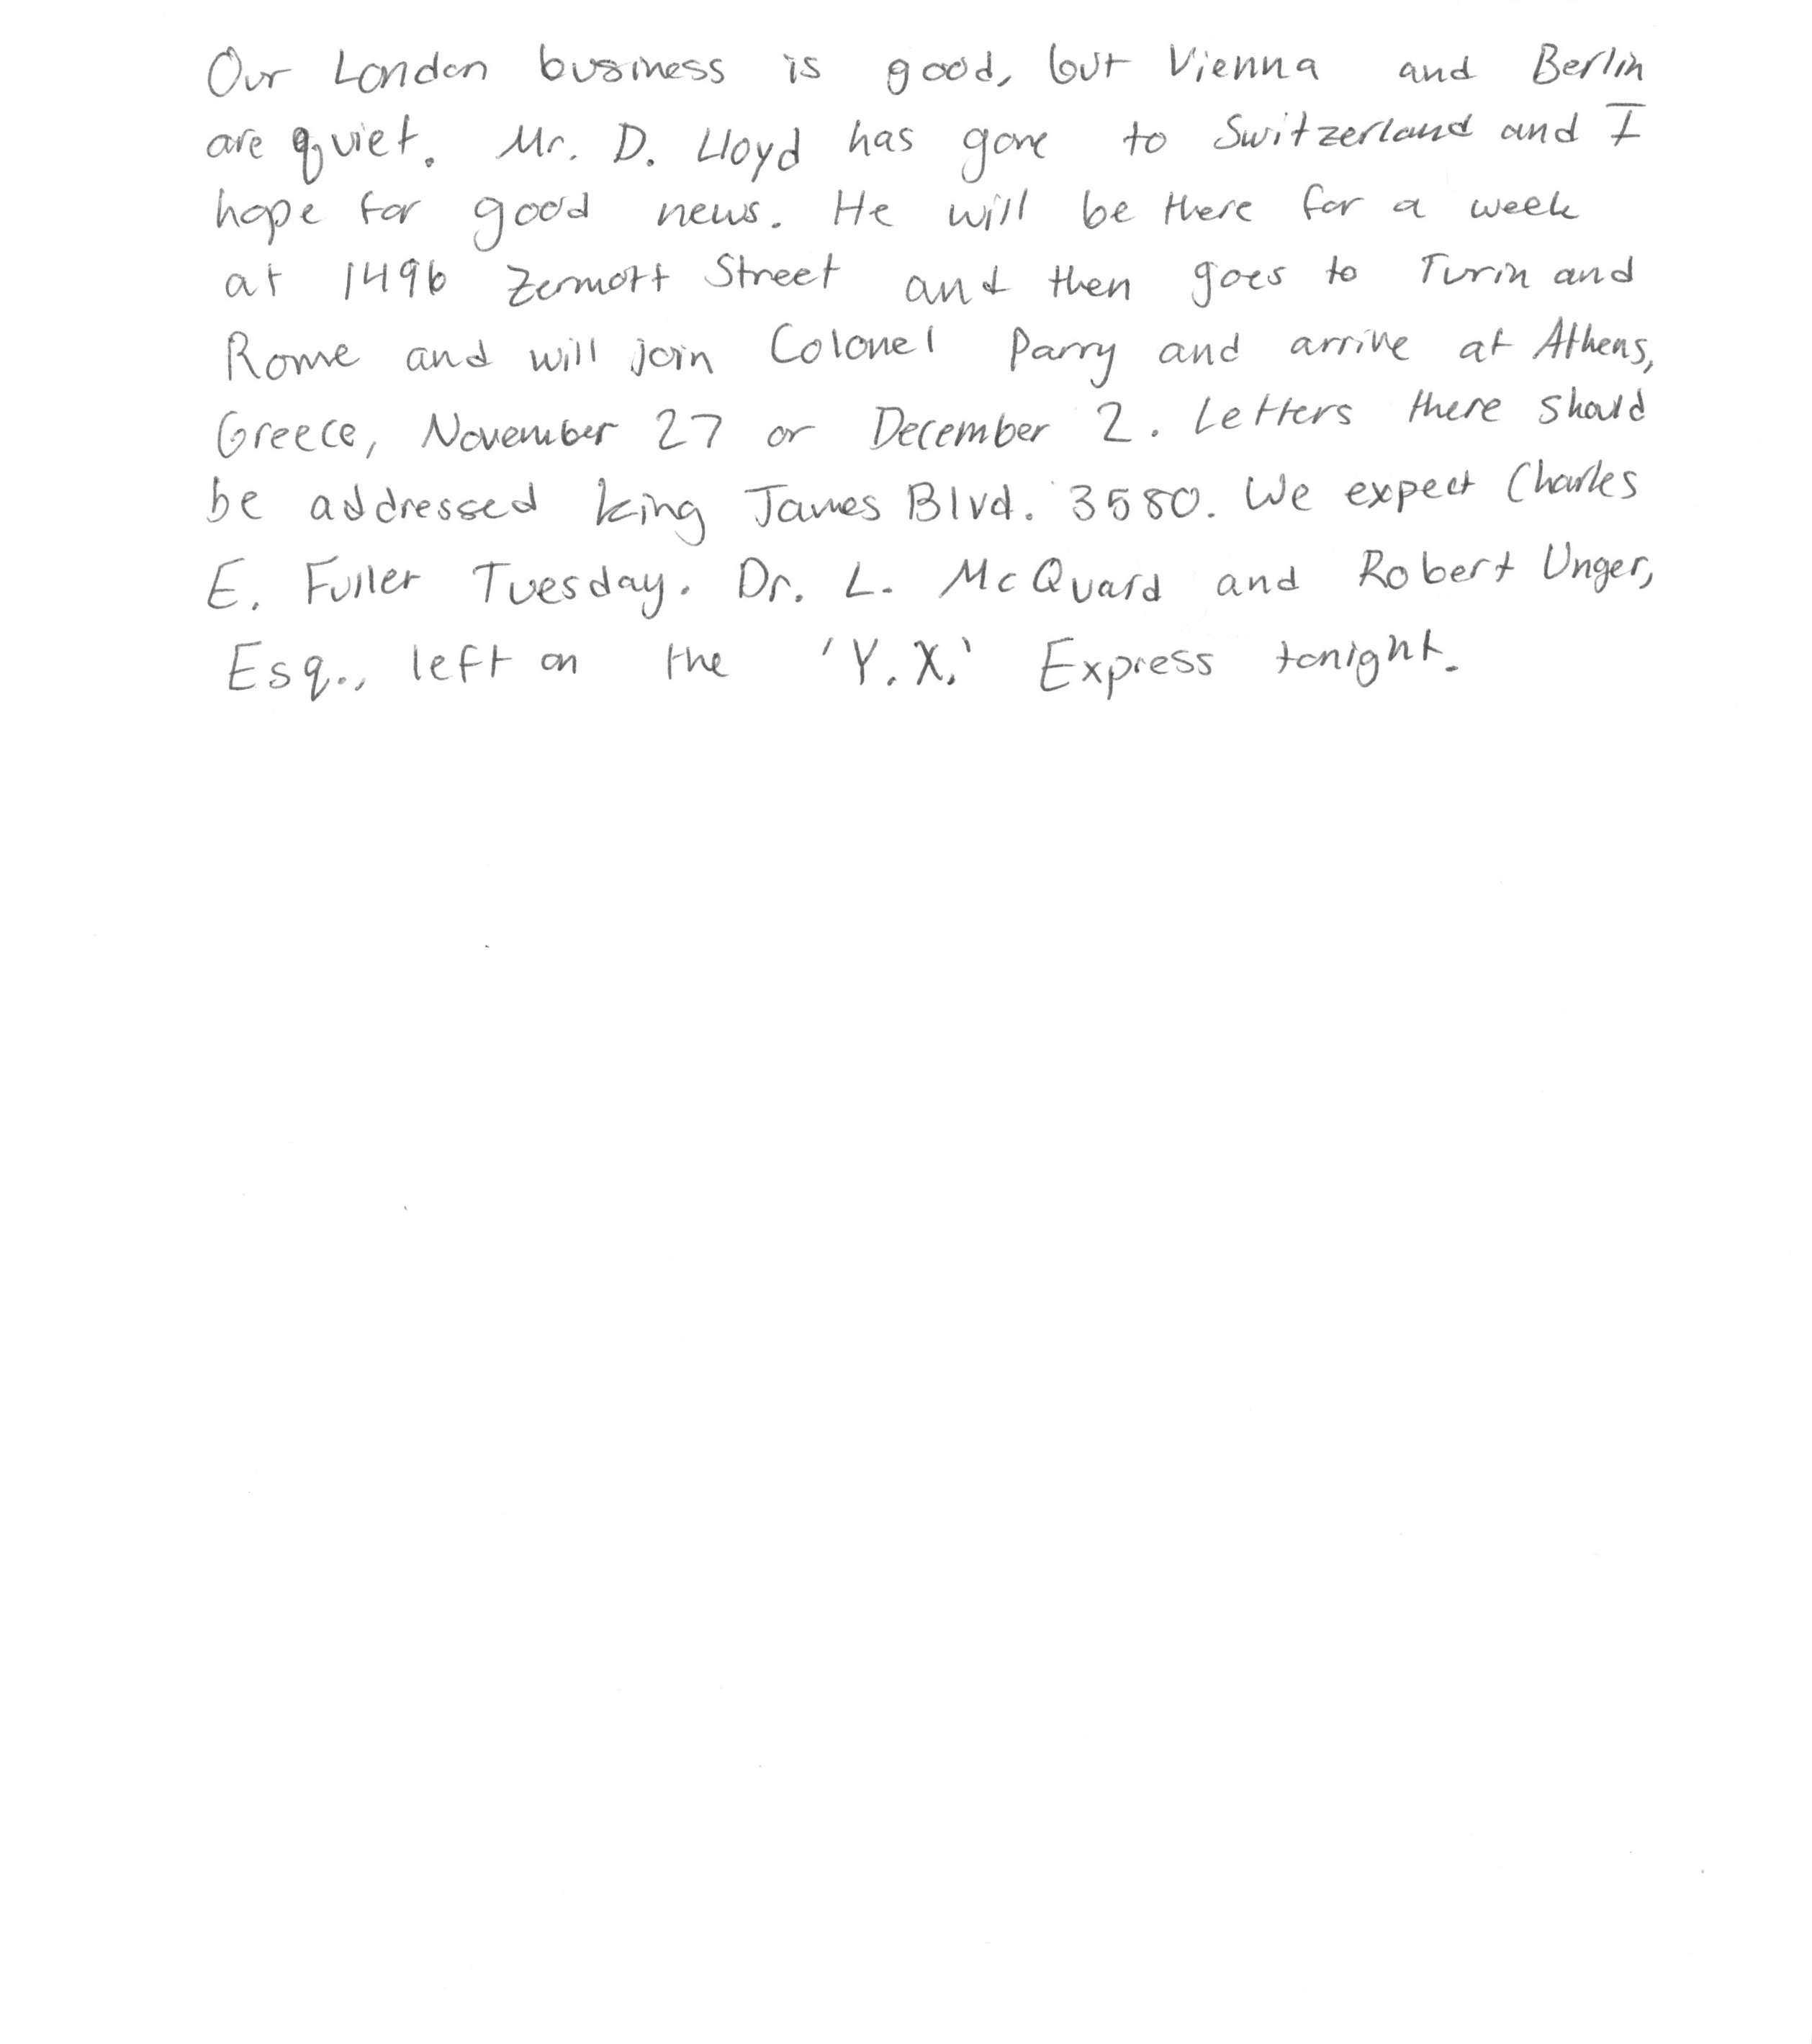 Our London business is good, but Vienna and Berlin
are quiet. Mr. D. Lloyd has gone to Switzerland and I
hope for good news. He will be there for a week
at 1496 Zermott Street and then goes to Turin and
Rome and will join Colonel Parry and arrive at Athens,
Greece, November 27 or December 2. Letters there should
be addressed King James Blvd. 3580. We expect Charles
E. Fuller Tuesday. Dr. L. McQuard and Robert Unger,
Esq., left on the 'Y.X.' Express tonight.